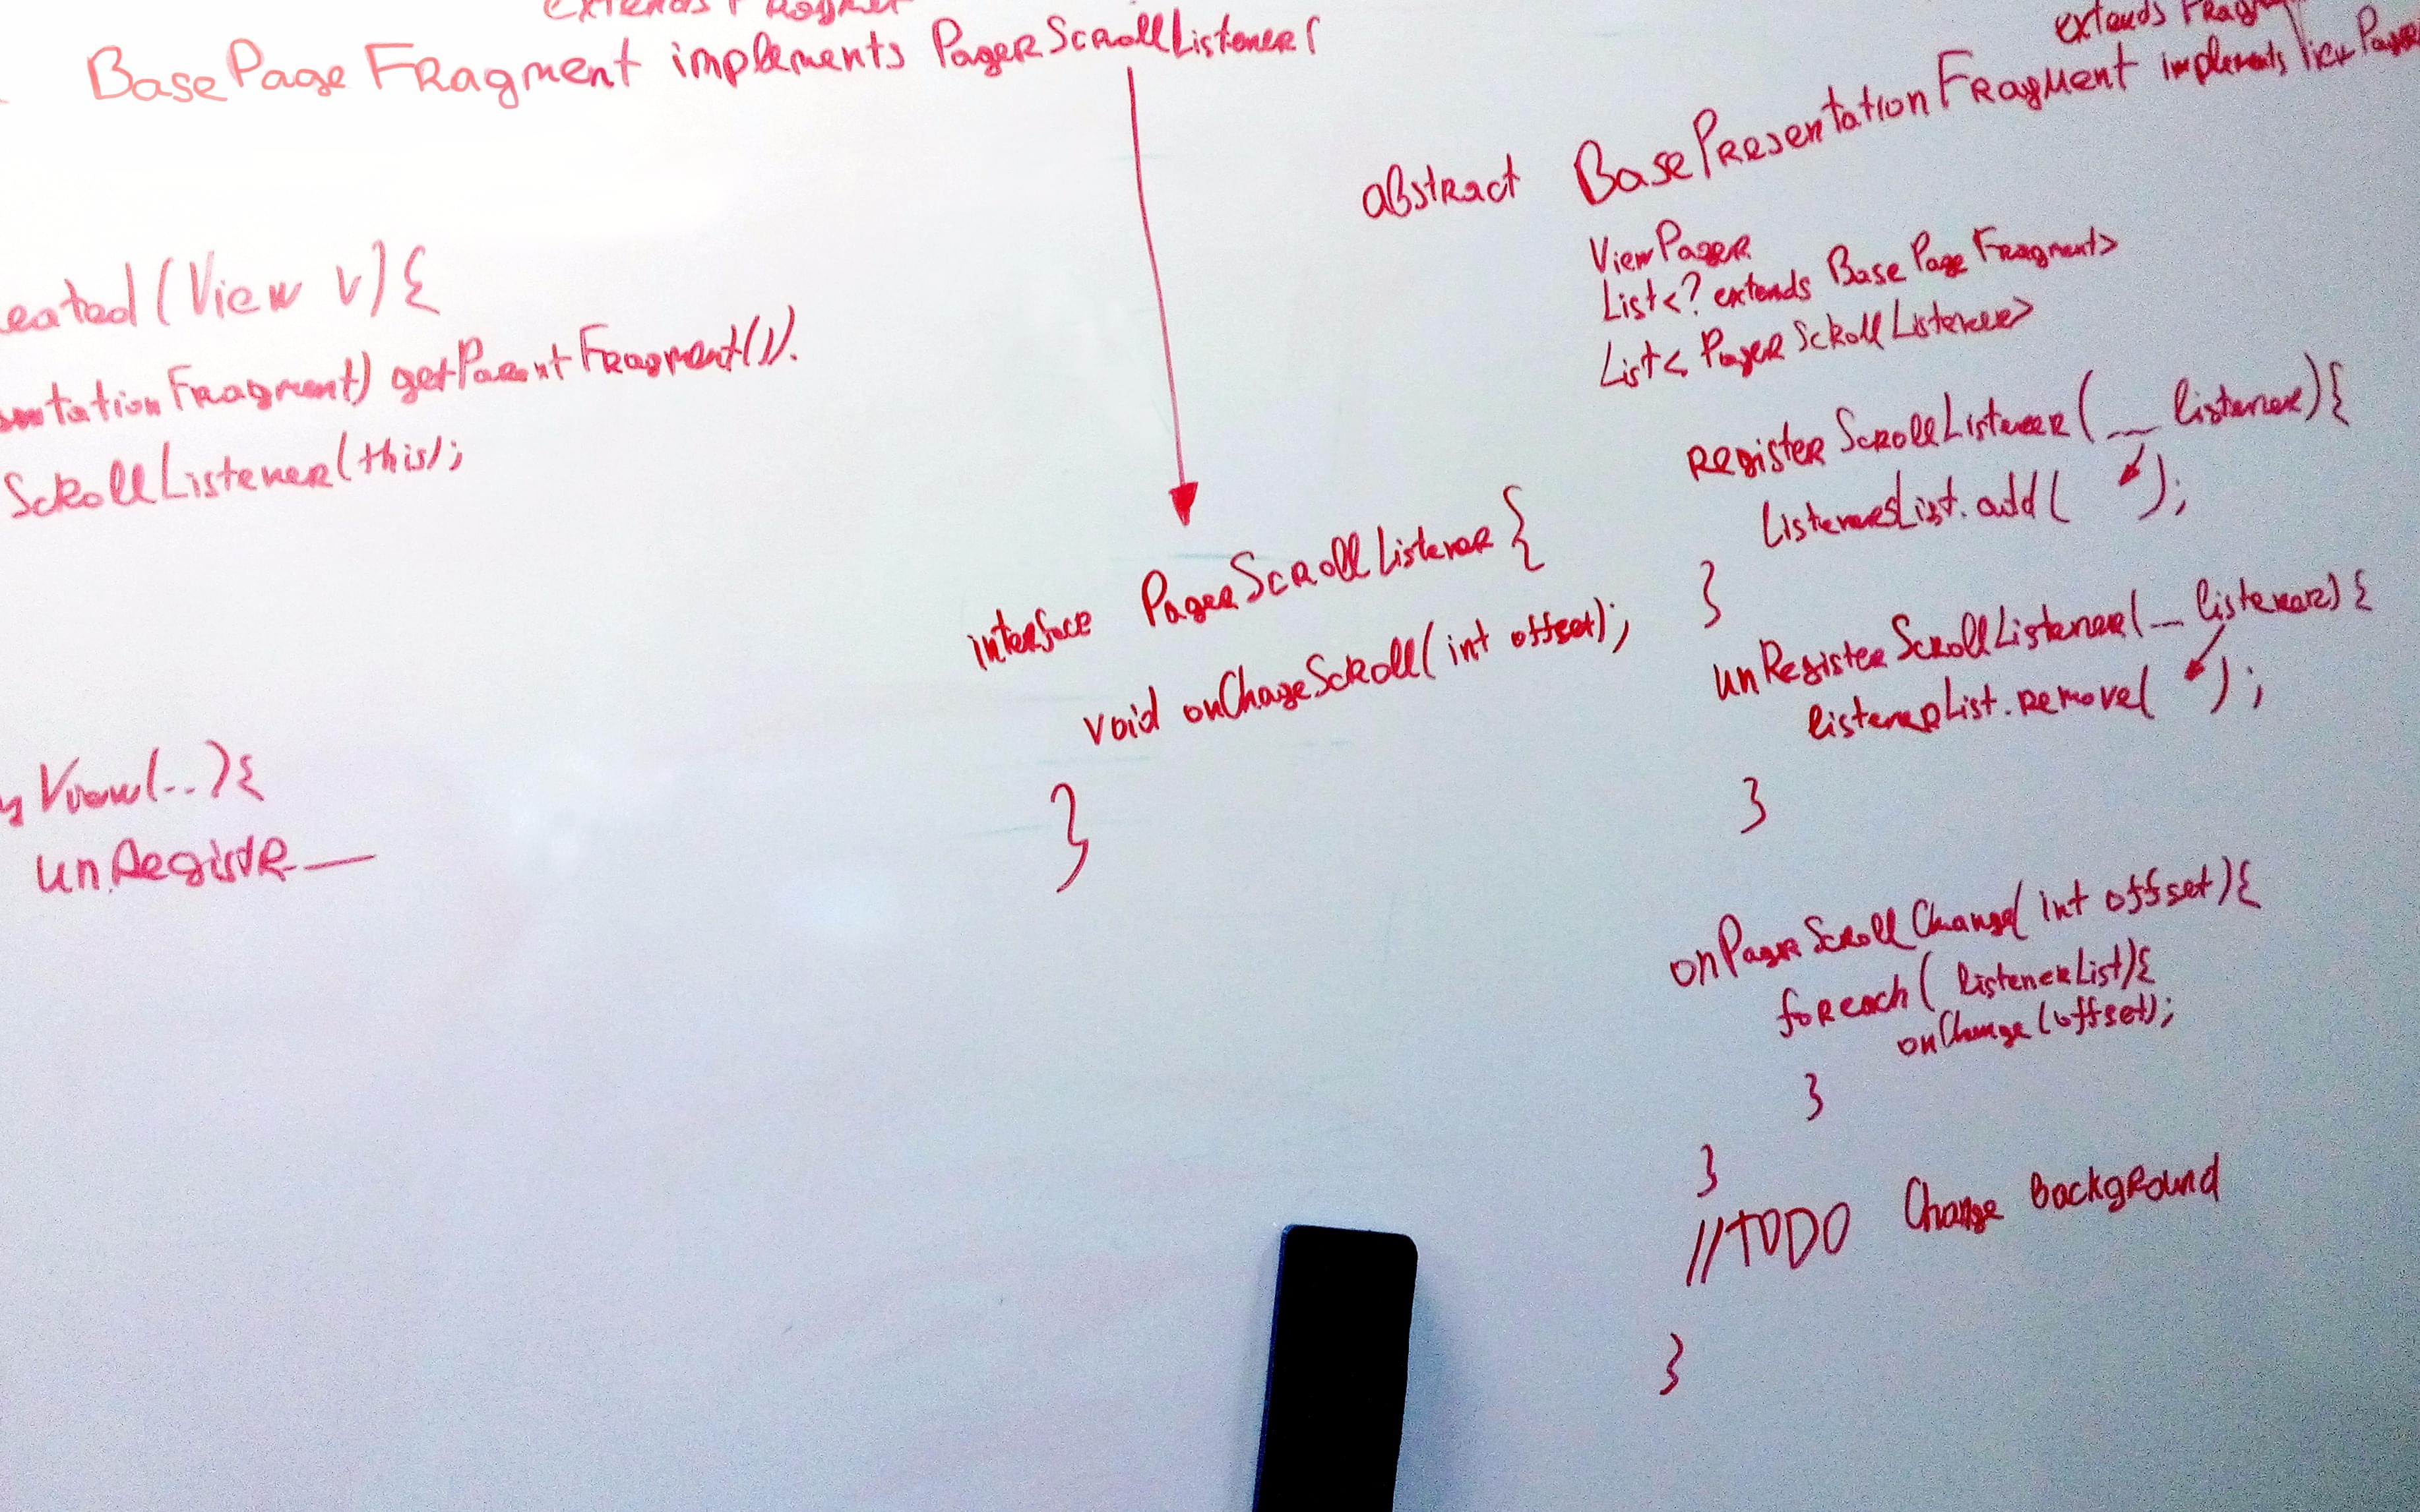 extends Fragment
BasePageFragment implements PagerScrollListener{
eated(View v){
entationFragment) getParentFragment()).
ScrollListener(this);
View(..){
unRegistR__
interface PagerScrollListener {
void onChageScroll(int offset);
}
extends Fragm
abstract BasePresentationFragment implements
ViewPager
List<? extends BasePageFragment>
List<PagerScrollListener>
registerScrollListener(__ listener){
listenersList.add( );
}
unRegisterScrollListener(__ listener){
listenerList.remove( );
}
onPagerScrollChange(int offset){
foreach( listenerList){
onChange(offset);
}
}
//TODO Change background
}